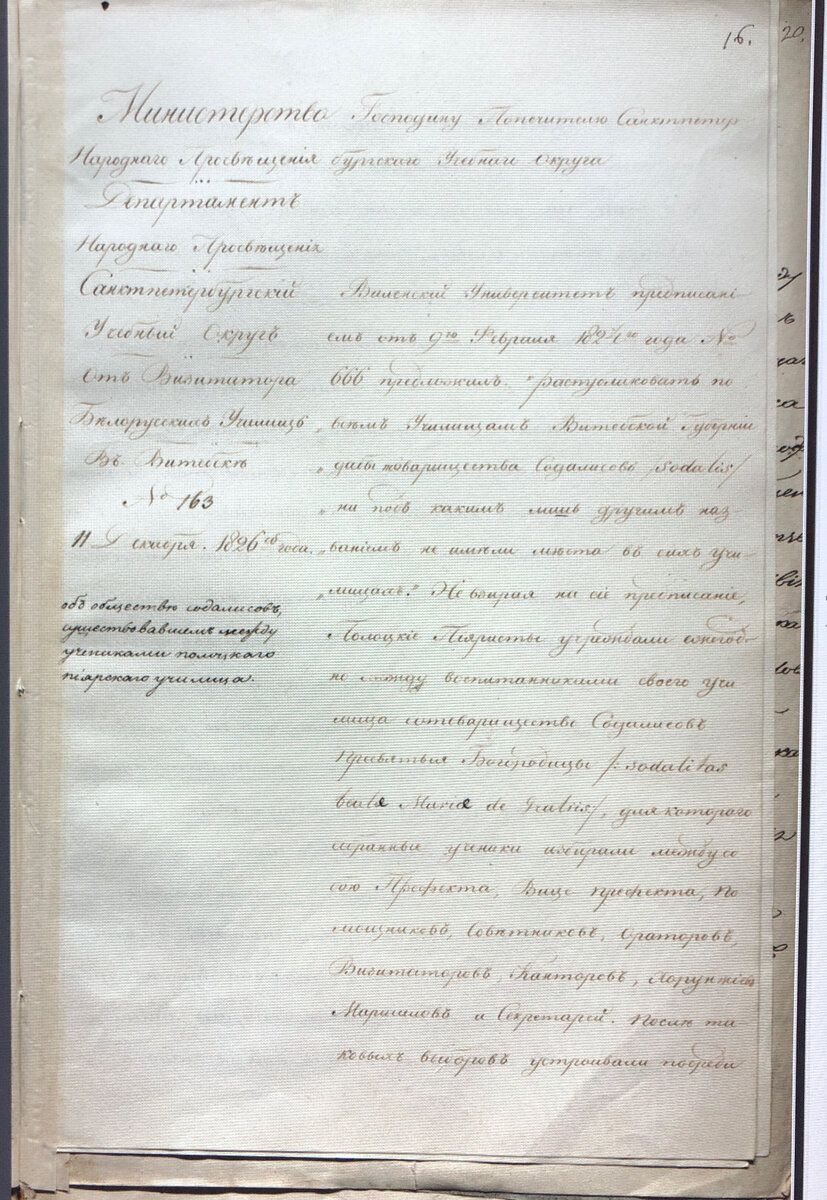 16.
20.
Министерство
Народнаго Просвѣщенія
Департаментъ
Народнаго Просвѣщенія
Санктпетербургскій
Учебный Округъ
Отъ Визитатора
Бѣлорусскихъ Училищъ
Въ Витебскѣ
№ 163
11 Декабря 1826 года.
объ обществѣ содалисовъ,
существовавшемъ между
учениками полоцкаго
піярскаго училища.
Господину Попечителю Санктпетер
бургскаго Учебнаго Округа
Виленскій Университетъ предписані-
емъ отъ 9го Февраля года №
666 предложилъ "распубликовать по
„ всѣмъ Училищамъ Витебской Губерніи
„ дабы товарищества Содалисовъ /sodalis/
„ ни подъ какимъ лишь другимъ наз-
„ ваніемъ не имѣли мѣста въ сихъ учи-
„ лищахъ." Не взирая на сіе предписаніе,
Полоцкіе Піяристы учреждали ежегод-
но между воспитанниками своего учи
лища сотоварищество Содалисовъ
Пресвятыя Богородицы /: sodalitas
Mariæ de /, для котораго
избранные ученики избирали между со
бою Префекта, Вице-префекта, По
мощниковъ, Совѣтниковъ, Ораторовъ,
Визитаторовъ, Канторовъ, Хорунжихъ
Маршаловъ и Секретарей. Послѣ та-
ковыхъ выборовъ устроивали посреди